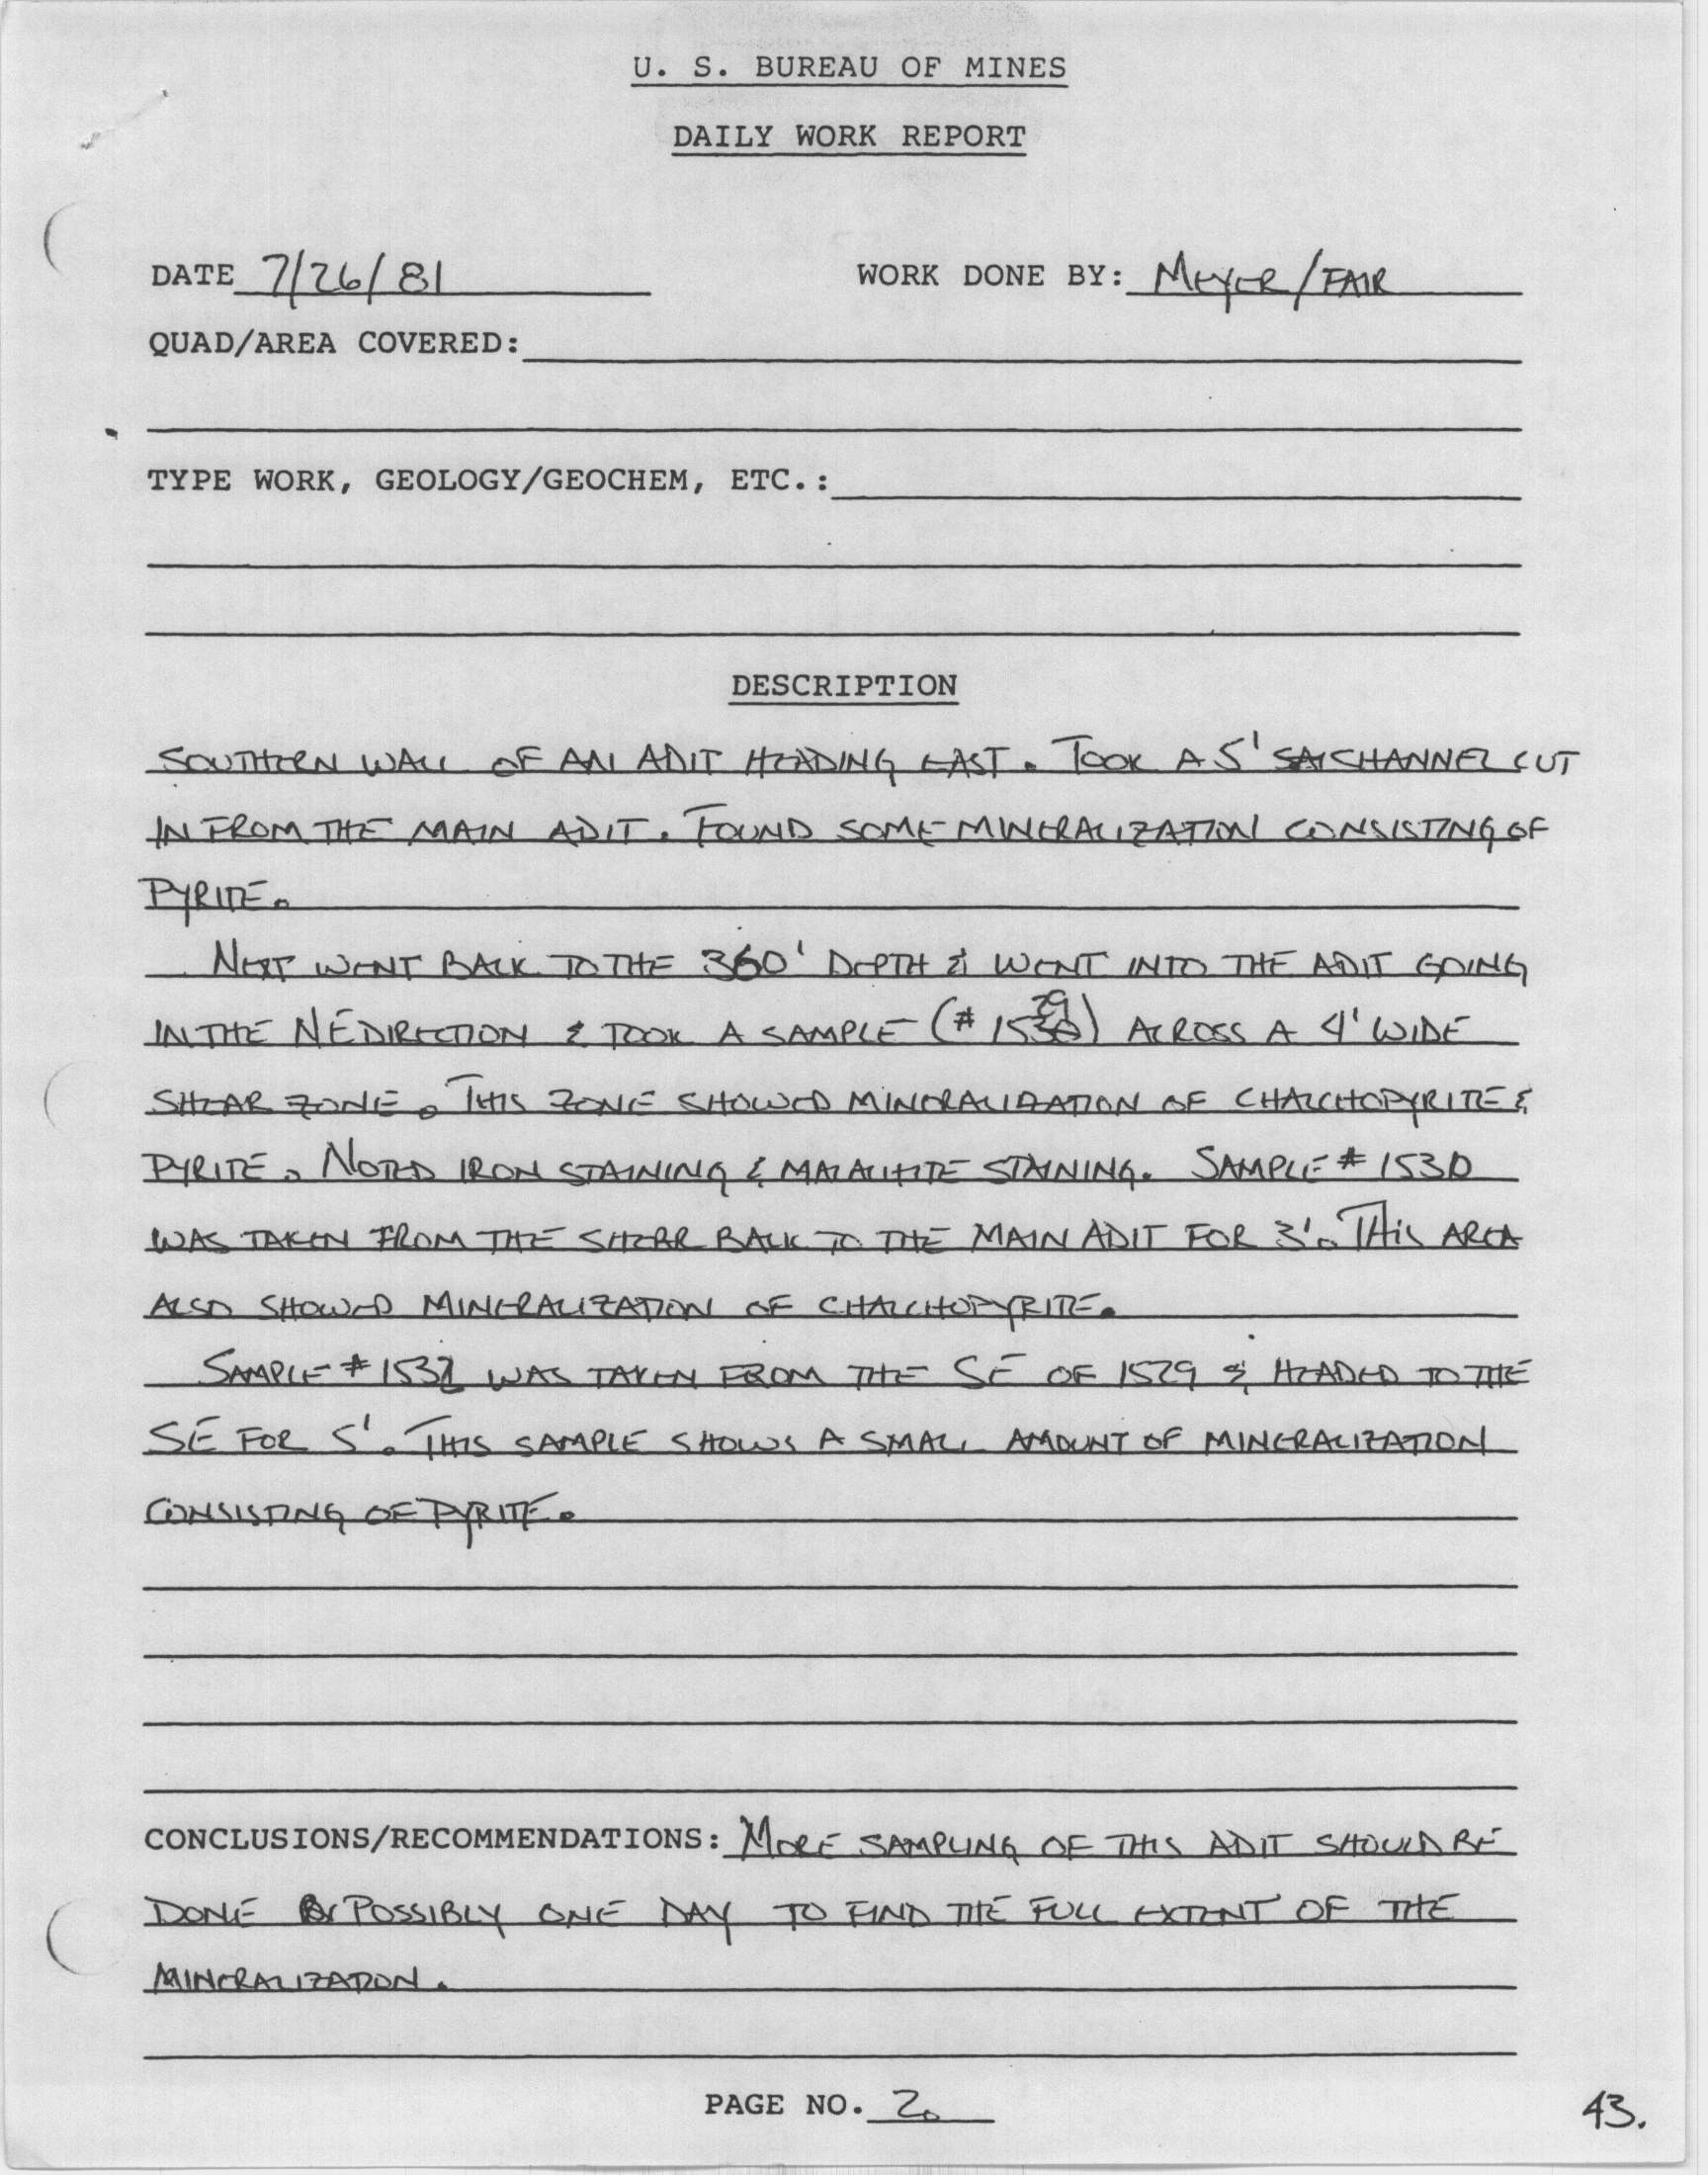 U. S. BUREAU OF MINES
DAILY WORK REPORT
DATE 7/26/81 WORK DONE BY: MEYER/FAIR
QUAD/AREA COVERED:
TYPE WORK, GEOLOGY/GEOCHEM, ETC.:
DESCRIPTION
SOUTHERN WALL OF AN ADIT HEADING EAST. TOOK A 5' CHANNEL CUT
IN FROM THE MAIN ADIT. FOUND SOME MINERALIZATION CONSISTING OF
PYRITE.
NEXT WENT BACK TO THE 360' DEPTH & WENT INTO THE ADIT GOING
IN THE NE DIRECTION & TOOK A SAMPLE (# 1529) ACROSS A 4' WIDE
SHEAR ZONE. THIS ZONE SHOWED MINERALIZATION OF CHALCHOPYRITE &
PYRITE. NOTED IRON STAINING & MALACHITE STAINING. SAMPLE # 1530
WAS TAKEN FROM THE SHEAR BACK TO THE MAIN ADIT FOR 3'. THIS AREA
ALSO SHOWED MINERALIZATION OF CHALCHOPYRITE.
SAMPLE # WAS TAKEN FROM THE SE OF 1529 & HEADED TO THE
SE FOR 5'. THIS SAMPLE SHOWS A SMALL AMOUNT OF MINERALIZATION
CONSISTING OF PYRITE.
CONCLUSIONS/RECOMMENDATIONS: MORE SAMPLING OF THIS ADIT SHOULD BE
DONE POSSIBLY ONE DAY TO FIND THE FULL EXTENT OF THE
MINERALIZATION.
PAGE NO. 2.
43.